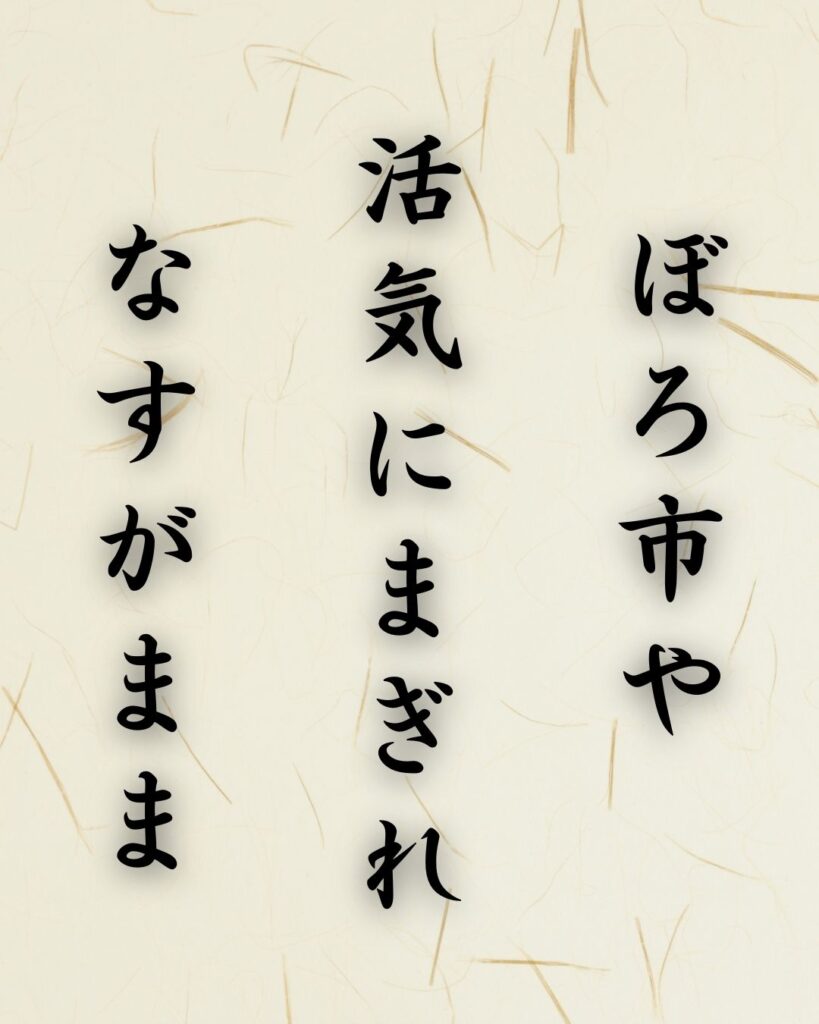 ぼろ市や
活気にまぎれ
なすがまま